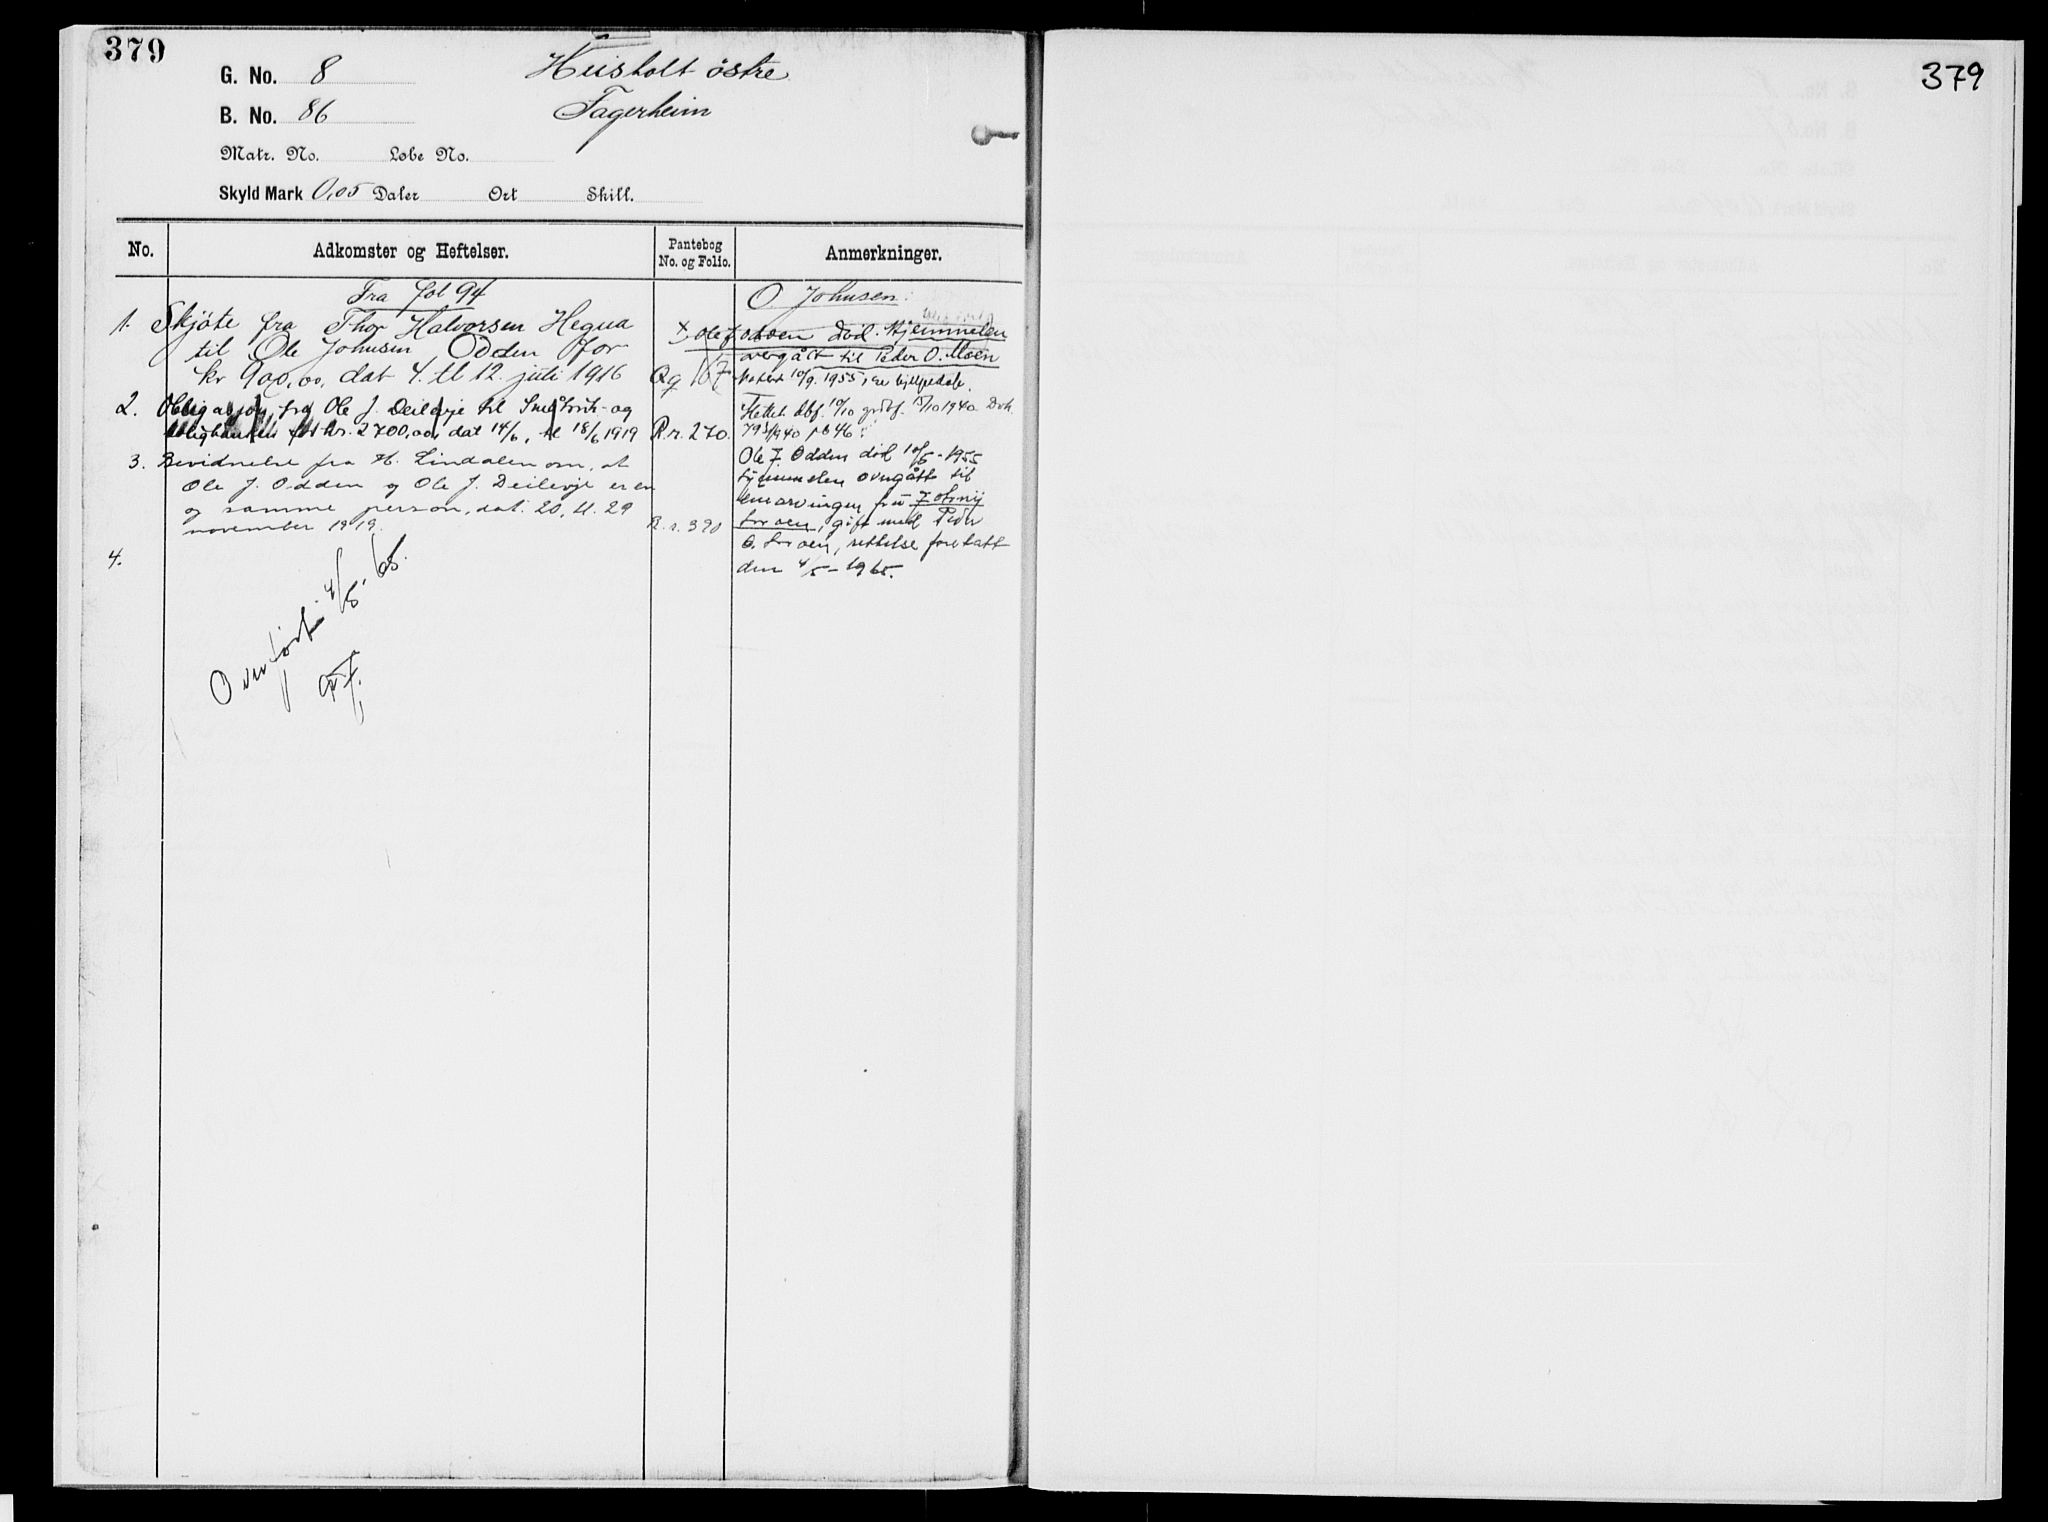 379
G. No. 8 Huisholt östre
B. No. 86 Fagerheim
Matr. No. Løbe No.
Skyld Mark 0,05 Daler Ort Skill.
No. Adkomster og Heftelser. Pantebog No. og Folio. Anmerkninger.
Fra fol 94
1. Skjöte fra Thor Halvorsen Hegna
til Ole Johnsen Odden for
kr 900,00, dat 4. tl 12. juli 1916 Qq 107
2. Obligasjon fra Ole J. Deilevje til Småbruk- og
boligbanken for kr. 2700,00, dat 14/6, tl 18/6 1919 R.r. 270.
3. Bevidnelse fra H. Lindalen om, at
Ole J. Odden og Ole J. Deilevje er en
og samme person, dat. 20, tl. 29
november 1919. R.r. 390
4.
Overført 4/5-65.
O. Johnsen.
Ole J. død. Hjemmelen
overgått til Peder O. Moen
Notert 10/9. 1955,
Slettet dbf. 10/10 grdbf. 15/10 1940. Dok.
793/1940 pb 46
Ole J. Odden död 10/5-1955
hjemmelen overgått til
enearvingen fru
Moen, gift med Peder
O. Moen, rettelse foretatt
den 4/5-1965.
379